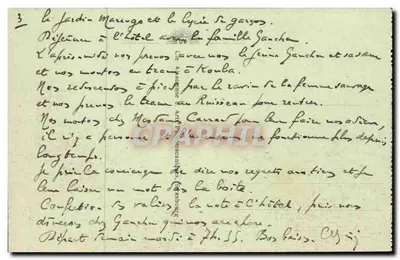 3 le Jardin Marengo et le lycée de garçons.
Déjeuner à l'hôtel avec la famille Gauchon.
L'après-midi nos prenons avec nos le jeune Gauchon et sa sœur
et nos montons en tram à Kouba.
Nos redescendons à pied par le ravin de la femme sauvage
et nos prenons le tram au Ruisseau pour rentrer.
Nos montons chez Mr et Mme pour leur faire nos adieux,
il n'y a personne et la ne fonctionne plus depuis
longtemps.
Je prie la concierge de dire nos regrets aux tiens et je
leur laisse un mot dans la boîte.
Confection des valises, la note à l'hôtel, puis nos
dînons chez Gauchon qui nos
Départ demain mardi à 7h. 55. Bons baisers.
CPARAMA.COM